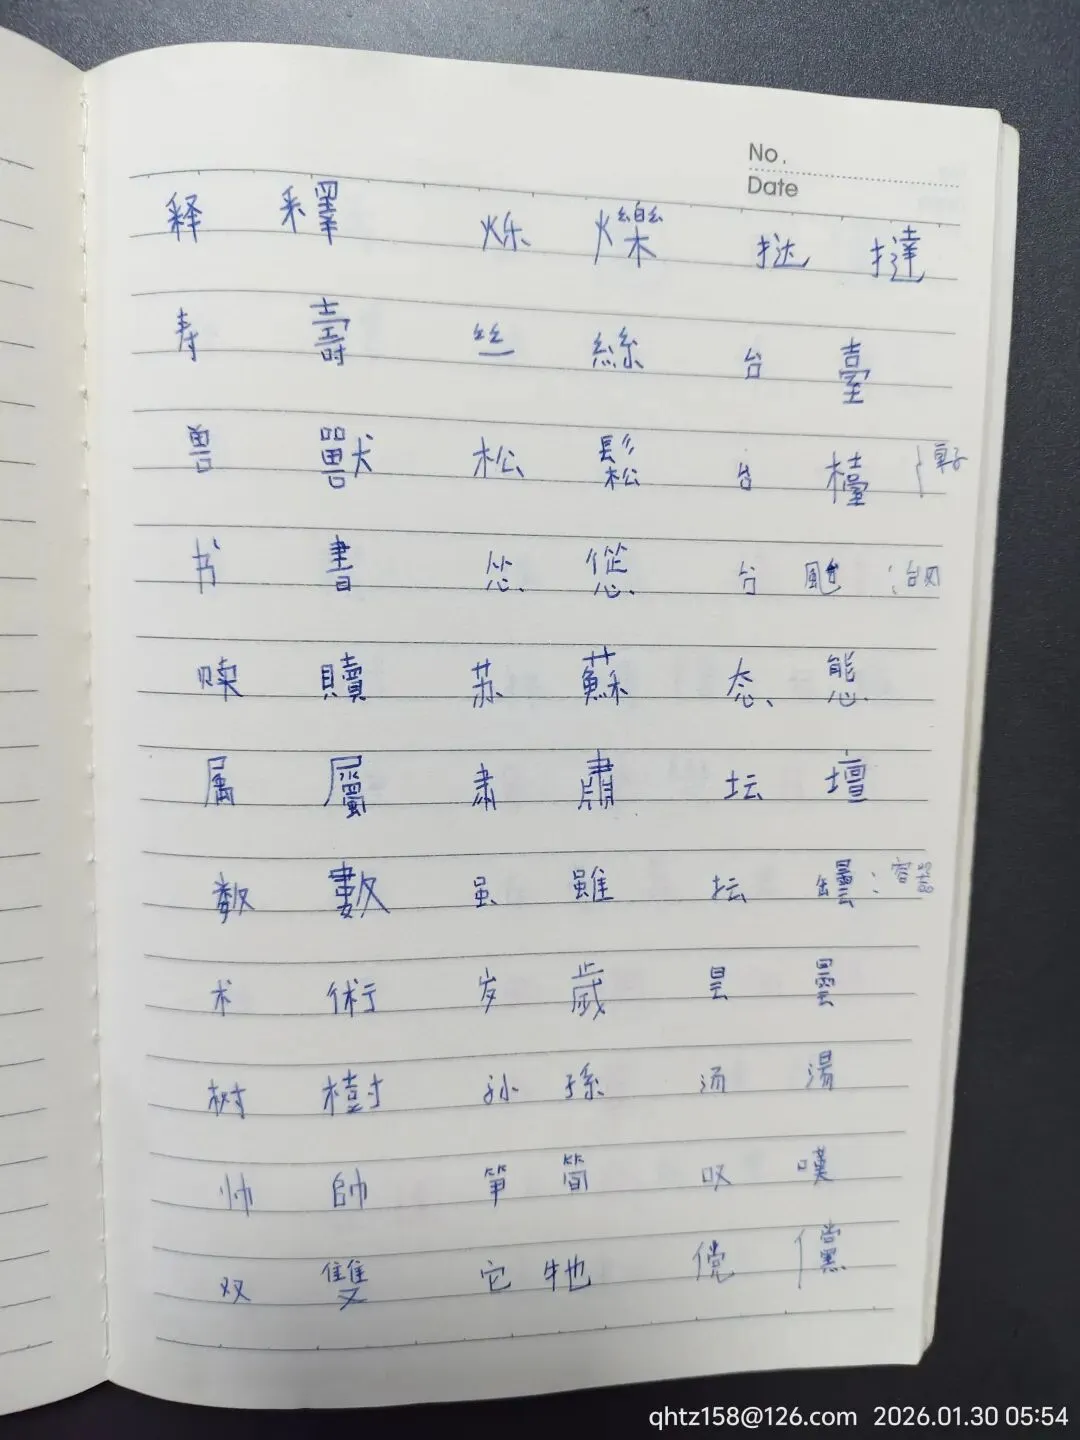 No.
Date
释 釋 烁 爍 挞 撻
寿 壽 丝 絲 台 臺
兽 獸 松 鬆 台 檯
书 書 怂 慫 台 颱
赎 贖 苏 蘇 态 態
属 屬 肃 肅 坛 壇
数 數 虽 雖 坛 罎
术 術 岁 歲 昙 曇
树 樹 孙 孫 汤 湯
帅 帥 笋 筍 叹 嘆
双 雙 它 牠 傥 儻
qhtz158@126.com 2026.01.30 05:54